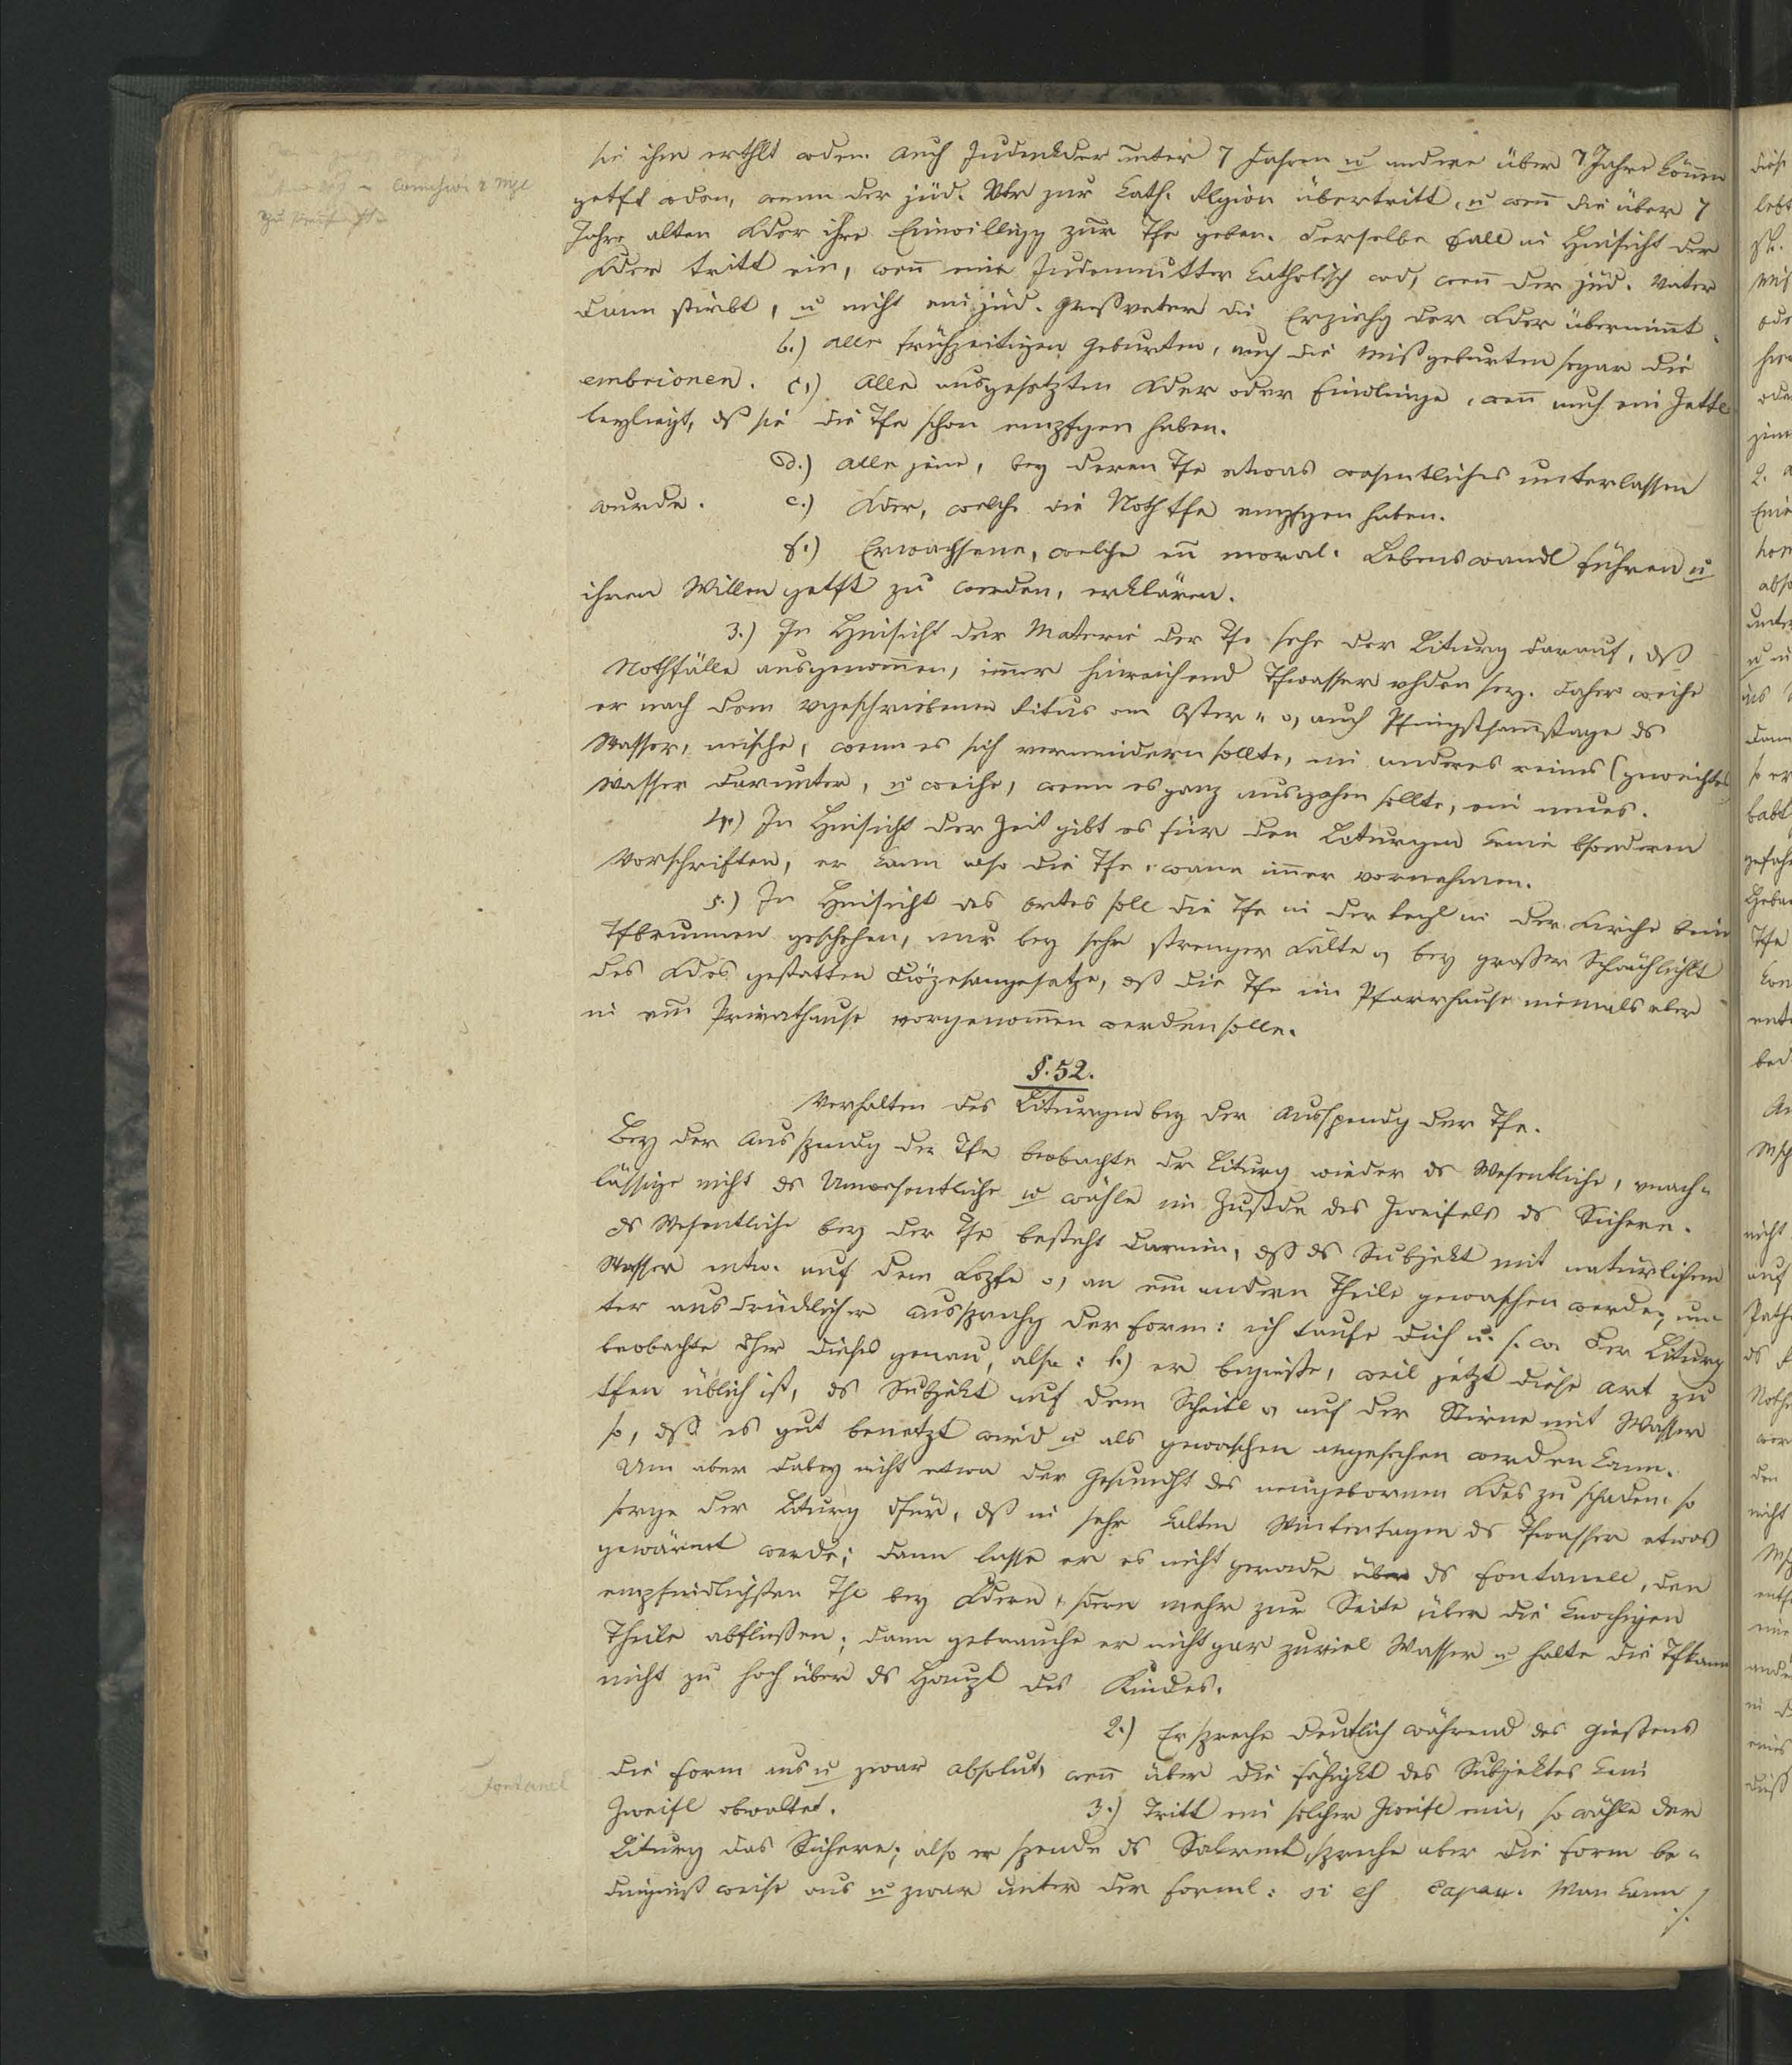 sie ihm erthlt wden. Auch Judenkder unter 7 Jahren u andere über 7 Jahre können
getft wden, wenn der jüd. Vtr zur kath. Rlgion übertritt, u wenn die über 7
Jahre alten Kder ihre Einwilligg zur Tfe geben. Derselbe Fall in Hinsicht der
Kder tritt ein, wenn eine Judenmutter katholisch wd, wenn der jüd. Vater
dann stirbt, u nicht ein jüd. Großvater die Erziehg der Kder übernimmt.
b.) Alle frühzeitigen Geburten, auch die Mißgeburten sogar die
embrionen. c.) Alle ausgesetzten Kder oder Findlinge, wenn auch ein Zettl
beyliegt, dß sie die Tfe schon empfgen haben.
d.) Alle jene, bey deren Tfe etwas wesentliches unterlassen
wurde. e.) Kder, welche die Nothtfe empfgen haben.
f.) Erwachsene, welche en moral. Lebenswandl führen u
ihren Willen getft zu werden, erklären.
3.) In Hinsicht der Materie der Tfe sehe der Liturg darauf, dß
Nothfälle ausgenommen, immer hinreichend Tfwasser vhden sey. Daher weihe
er nach dem vgeschriebenen Ritus am Oster- o, auch Pfingstsamstage ds
Wasser, mische, wenn es sich vermindern sollte, ein anderes reines (geweihtes
Wasser darunter, u weihe, wenn es ganz ausgehen sollte, ein neues.
4.) In Hinsicht der Zeit gibt es für den Liturgen keine bsonderen
Vorschriften, er kann also die Tfe, wann immer vornehmen.
5.) In Hinsicht des Ortes soll die Tfe in der Regl in der Kirche beim
Tfbrunnen geschehen, nur bey sehr strenger Kälte o, bey großer Schwächlichkt
des Kdes gestatten Diözesangesetze, dß die Tfe im Pfarrhause niemals aber
in em Privathause vorgenommen werden solle.
§. 52.
Verhalten des Liturgen bey der Ausspendg der Tfe.
Bey der Ausspendg der Tfe beobachte der Liturg wieder ds Wesentliche, vnach-
lässige nicht ds Unwesentliche u wähle im Zustde des Zweifels ds Sichere.
ds Wesentliche bey der Tfe besteht darin, dß ds Subjekt mit natürlichem
Wasser entw. auf dem Kopfe o, an em andern Theile gewaschen werde, un-
ter ausdrücklicher Aussprechg der Form: ich taufe dich u. s. w. Der Liturg
beobachte dher dieses genau, also: 1.) er begieße, weil jetzt diese Art zu
tfen üblich ist, ds Subjekt auf dem Scheitl o, auf der Stirne mit Wasser
so, dß es gut benetzt wird u als gewaschen angesehen werden kann.
Um aber dabey nicht etwa der Gesundht des neugebornen Kdes zu schaden, so
sorge der Liturg dfür, dß in sehr kalten Wintertagen ds Tfwasser etwas
gewärmt werde; dann lasse er es nicht gerade über ds Fontanell, den
empfindlichsten Thl bey Kdern, sdern mehr zur Seite über die knochigen
Theile abfließen; dann gebrauche er nicht gar zuviel Wasser u halte die Tfkann
nicht zu hoch über ds Haupt des Kindes.
2.) Er spreche deutlich während des Gießens
die Form aus u zwar absolut, wenn über die Fähigkt des Subjektes kein
Fontanel
Zweifl obwaltet. 3.) Tritt ein solcher Zweifl ein, so wähle der
Liturg das Sichere; also er spende ds Sakrmt, spreche aber die Form be-
dingnißweise aus u zwar unter der Forml: si es capax. Man kann
./.